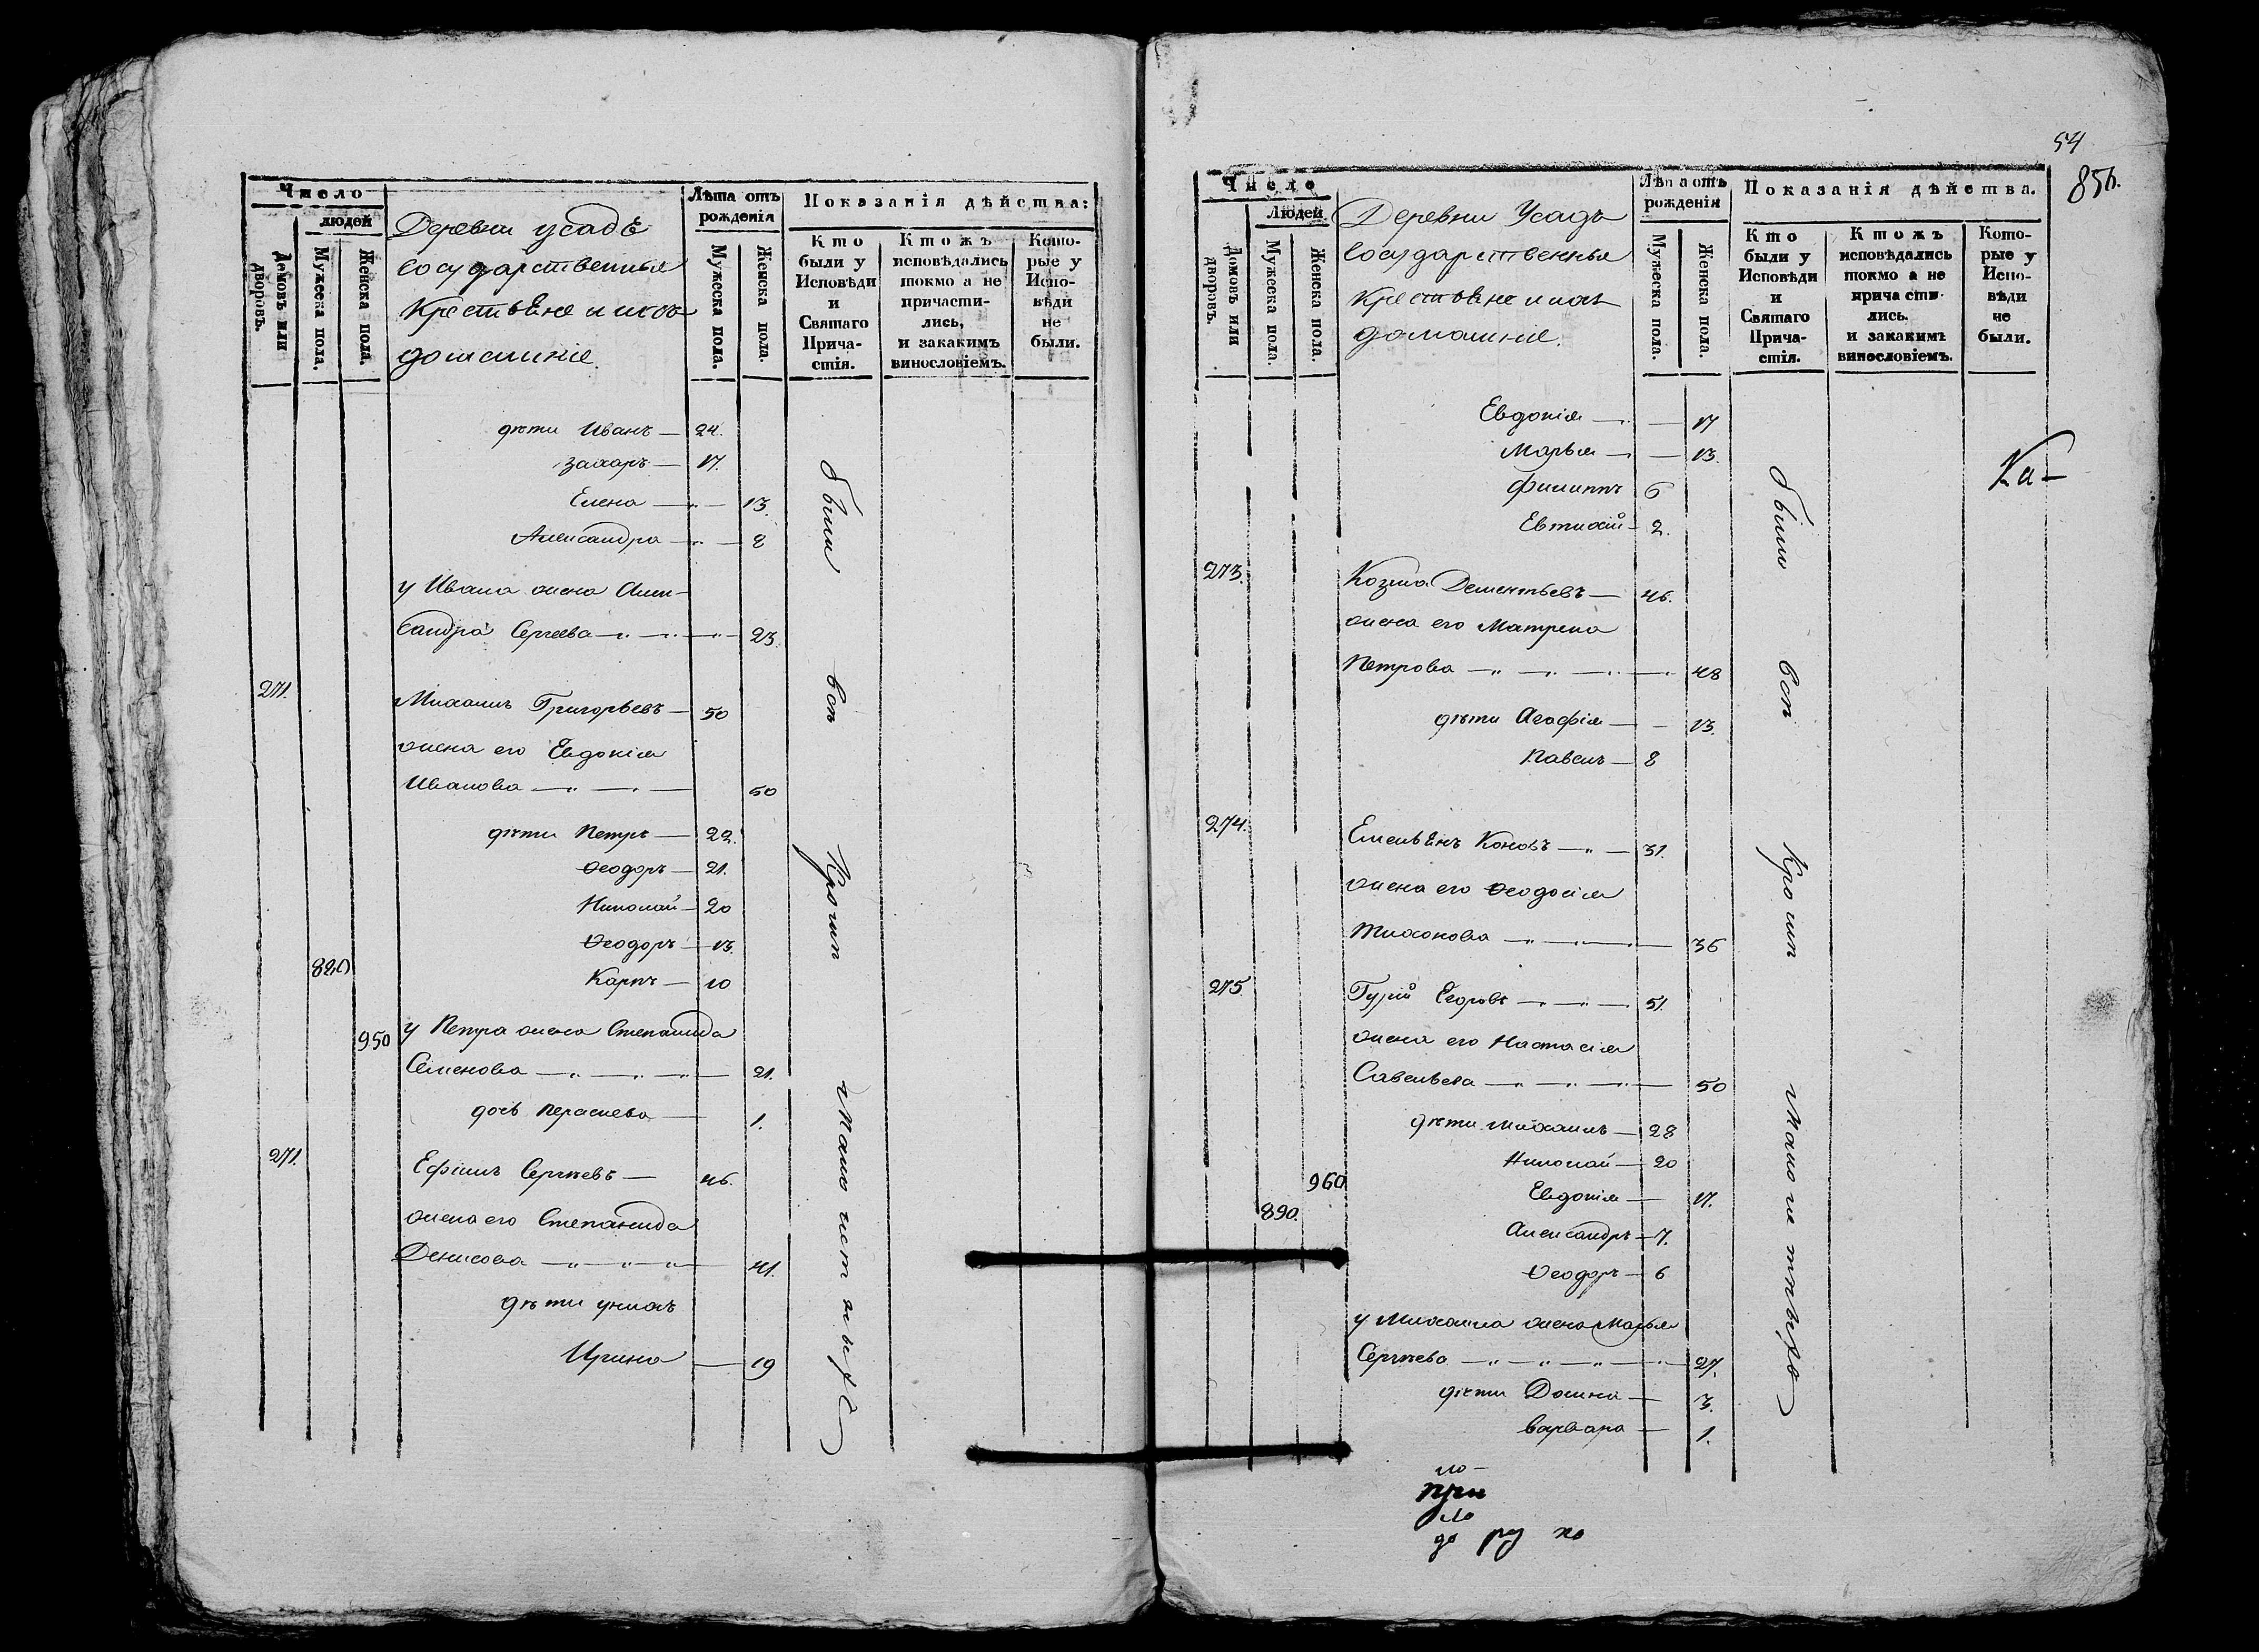 Число
людей
Домовъ или дворовъ.
Мужеска пола.
Женска пола.
Деревни усадъ
Государственныя
Крестьяне и ихъ
домашніе.
Лѣта отъ рожденія
Мужеска пола.
Женска пола.
Показанія дѣйства:
Кто были у Исповѣди и Святаго Причастія.
Ктожъ исповѣдались токмо а не причастились, и закакимъ винословіемъ.
Которые у Исповѣди не были.
дѣти Иванъ — 24.
Захаръ — 17.
Елена — 13.
Александра — 8
у Ивана жена Алек-
сандра Сергеева — 23
271. Михаилъ Григорьевъ — 50
жена его Евдокія
Иванова — 50
дѣти Петръ — 22.
Ѳеодоръ — 21.
Николай — 20
Ѳеодоръ — 13.
880
Карпъ — 10
950 у Петра жена Степанида
Семенова — 21.
дочь Параскева — 1.
271. Ефимъ Сергѣевъ — 46.
жена его Степанида
Денисова — 41.
дѣти у нихъ
Ирина — 19
были всѣ кромѣ малолетныхъ
54
856.
Число
Людей
Домовъ или дворовъ.
Мужеска пола.
Женска пола.
Деревни Усадъ
Государственныя
Крестьяне и ихъ
домашніе.
Лѣта отъ рожденія
Мужеска пола.
Женска пола.
Показанія дѣйства.
Кто были у Исповѣди и Святаго Причастія.
Ктожъ исповѣдались токмо а не причастились. и закакимъ винословіемъ.
Которые у Исповѣди не были.
Евдокія — 17
Марья — 13.
Филиппъ 6
Евтихій — 2.
Ка-
273. Козма Дементьевъ — 46.
жена его Матрена
Петрова — 48
дѣти Агафія — 13.
Павелъ — 8
274. Емельянъ Коновъ — 31.
жена его Ѳеодосія
Тихонова — 36
275 Гурій Егоровъ — 51.
жена его Настасія
Савельева — 50
дѣти Михаилъ — 28
Николай — 20
960 Евдокія — 17.
890. Александръ — 7.
Ѳеодоръ — 6
у Михаила жена Марья
Сергѣева — 27.
дѣти Домна — 3.
Варвара — 1.
были всѣ кромѣ малолетныхъ
ло-
при
ло
до ру ко